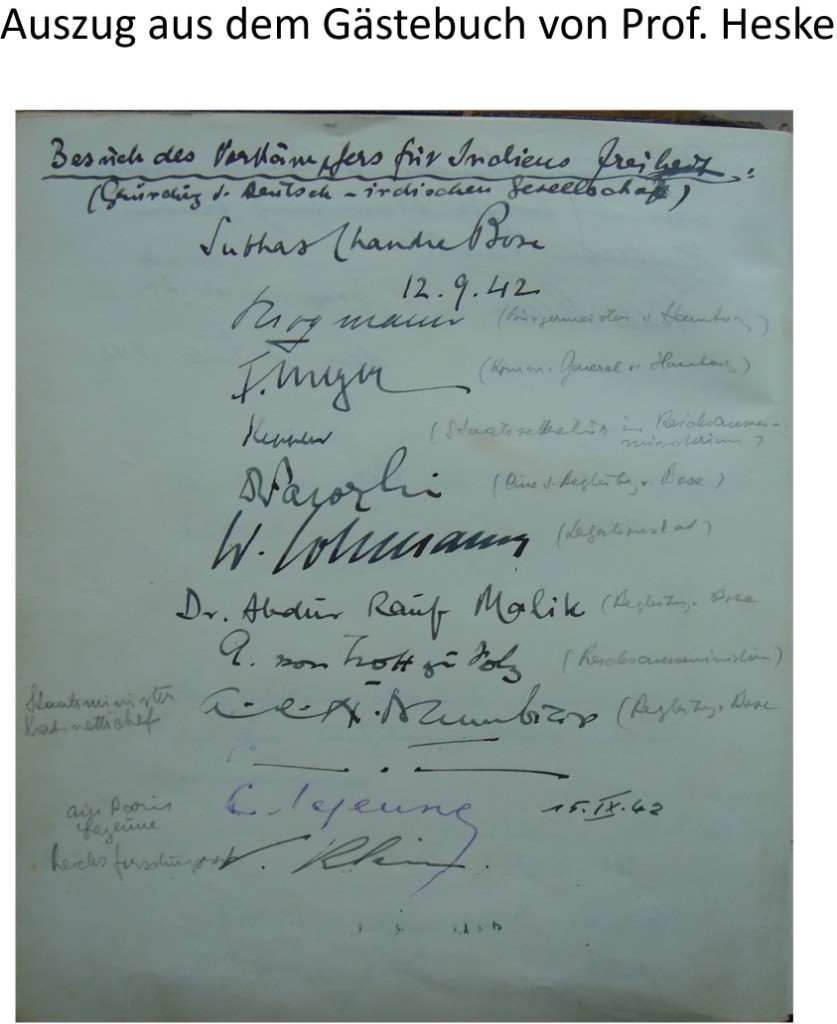 Auszug aus dem Gästebuch von Prof. Heske
Besuch des Vorkämpfers für Indiens Freiheit:
(Gründung d. Deutsch-indischen Gesellschaft)
Subhas Chandra Bose
12.9.42
Krogmann (Bürgermeister v. Hamburg)
F. Meyer (Komm. General v. Hamburg)
Keppler (Staatssekretär im Reichsaussen-
ministerium)
(Eine d. Begleitg. v. Bose)
W. Lohmann (Legationsrat)
Dr. Abdur Rauf Malik (Begleitg. v. Bose
A. von Trott zu Solz (Reichsaussenministerium)
Staatsminister
Kabinettschef
A.C.N. Nambiar (Begleitg. v. Bose
aus Paris
Lejeune
C. Lejeune 15.IX.42
Reichsforschungsrat
Klein